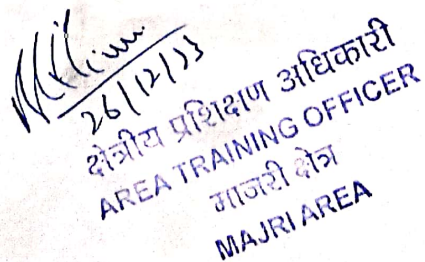 26/12/23
क्षेत्रीय प्रशिक्षण अधिकारी
AREA TRAINING OFFICER
माजरी क्षेत्र
MAJRI AREA